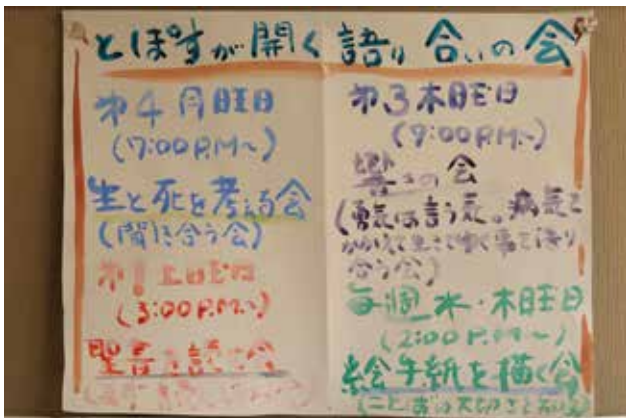 とぽすが開く語り合いの会
第4月曜日
(7:00P.M.~)
生と死を考える会
(間に合う会)
第1土曜日
(3:00P.M.~)
聖書を読む会
第3木曜日
(7:00P.M.~)
響きの会
(勇気は言う気。病気を
かかえて生きて ゆく事を語り
合う会)
毎週 水・木曜日
(2:00P.M.~)
絵手紙を描く会
(ことばの大切さを